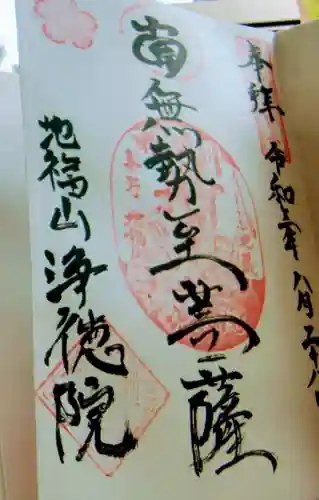 奉拝 令和三年 八月
南無勢至菩薩
地福山 浄徳院